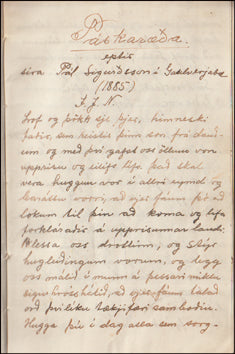 Páskaræða.
eptir
síra Pál Sigurðsson í Gaulverjabæ
(1885)
I. J. N.
Lof og þökk sje þjer, himneski
faðir, sem reistir þinn son frá dauð-
um og með því gafst oss öllum von
upprisu og eilífs lífs. það skal
vera huggun vor í allri neyð og
baráttu vorri, að vjer fáum þó að
lokum til þín að koma og lifa
forkláraðir á upprisunnar landi.
Blessa oss drottinn, og
hugleiðingu vorum, og legg
oss málið í munn á þessari miklu
sigurhróshátíð, að vjer fáum talað
orð því líku tækifæri samboðin.
Hugga þú í dag alla sem sorg-